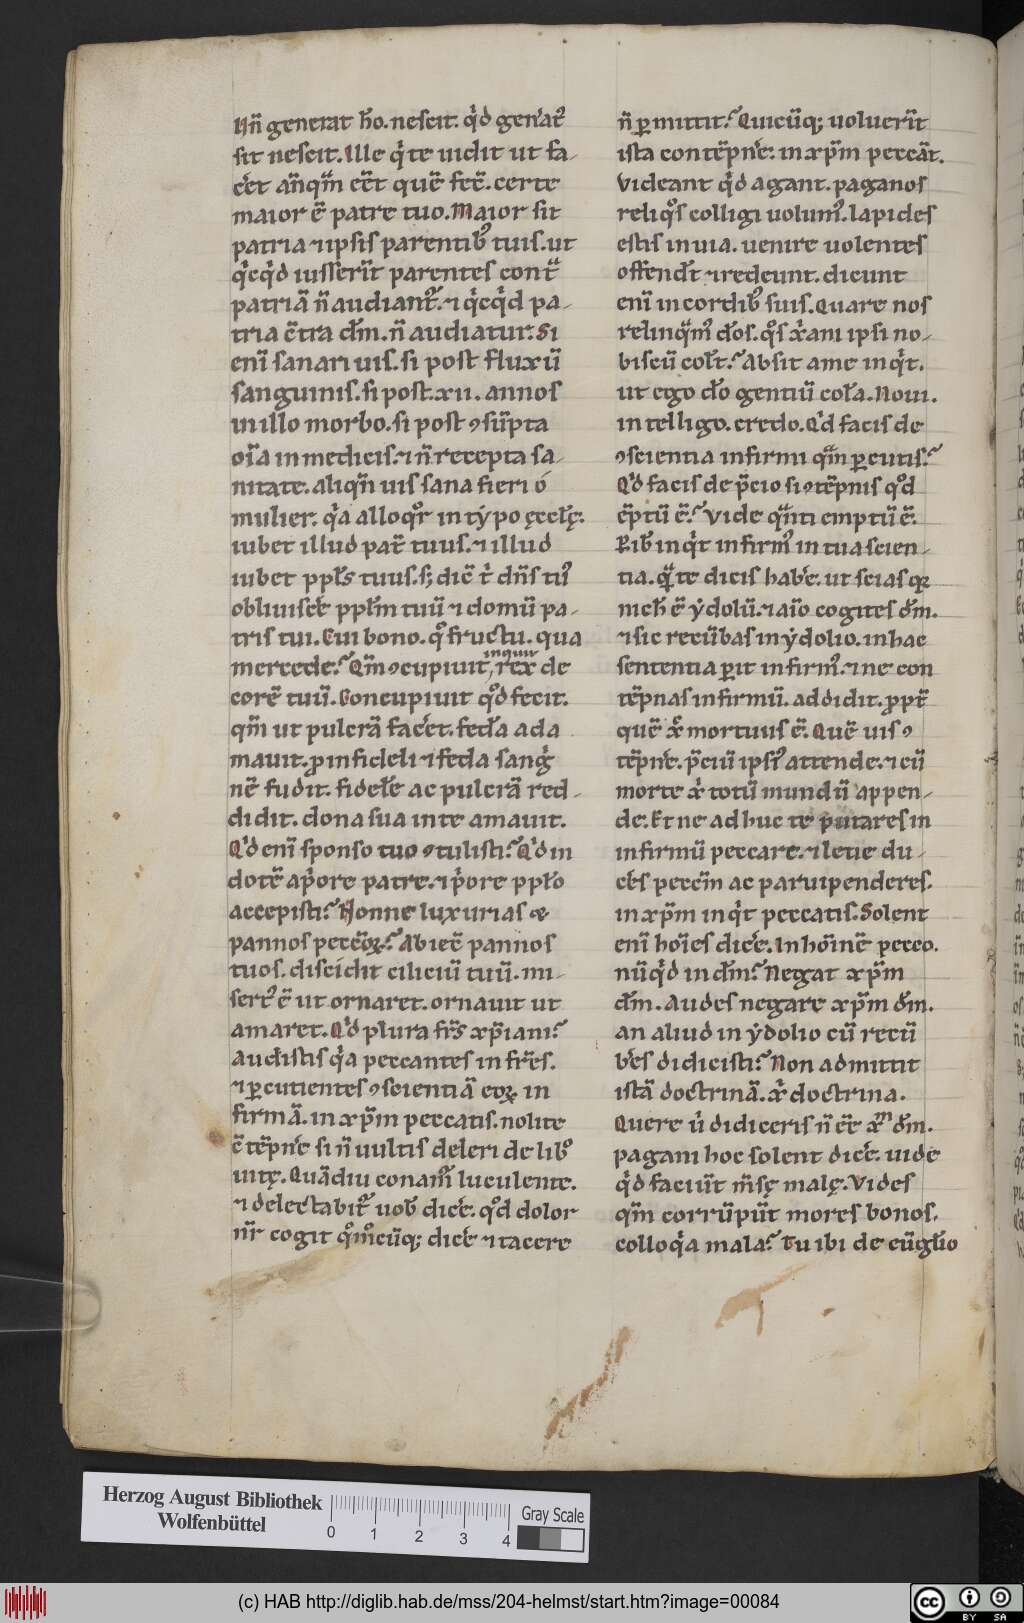 Nñ generat hõ. nescit. q̇d genat᷒
sit nescit. Ille q̇ te uidit ut fa-
c̾et añqm̃ eẽt quẽ fec̃. certe
maior ẽ patre tuo. Maior sit
patria ⁊ ipsis parentib᷒ tuis. ut
q̇cq̇d iusser̃it parentes cont̃
patriã ñ audiant᷒. ⁊ q̇cq̇d pa-
tria c̃tra dm̃. ñ audiatur. Si
enĩ sanari uis. si post fluxũ
sanguinis. si post. xii. annos
in illo morbo. si post ꝯsũpta
oĩa in medicis. ⁊ ñ recepta sa-
nitate. aliqñ uis sana fieri ó
mulier. q̇a alloqr̃ in tẏpo ęccłę.
iubet illud pat̃ tuus. ⁊ illud
iubet pplś tuus. s; dic̃ t̾ dñs tu᷒
obliuisc̾e pplm̃ tuũ ⁊ domũ pa-
tris tui. Cui bono. qͦ fructu. qua
mercede? Qm̃ ꝯcupiuit, inquit rex de
corẽ tuũ. Concupiuit qͦd fecit.
qm̃ ut pulcrã fac̾et. fedã ada
mauit. ꝓ infideli ⁊ feda sang̾
nẽ fudit. fidelẽ ac pulcrã red-
didit. dona sua in te amauit.
Qͥd enĩ sponso tuo ꝯtulisti? Qͥd in
dotẽ ap̾ore patre. ⁊ p̾ore pplo
accepisti? Nonne luxurias &
pannos peccõꝝ? Abiec̃ pannos
tuos. discidit ciliciũ tuũ. mi-
sert᷒ ẽ ut ornaret. ornauit ut
amaret. Qͥd plura frs̃ xp̃iani?
Audistis q̇a peccantes in frẽs.
⁊ ꝑcutientes ꝯscientiã eoꝝ in
firmã. in xp̃m peccatis. nolite
c̃tẽpn̾e si ñ uultis deleri de lib᷒
uitę. Quãdiu conam᷒ luculente.
⁊ delectabit᷒ uob̃ dic̾e. qͦd dolor
nr̃ cogit qͦmͦcũq; dic̾e ⁊ tacere
ñ ꝑmittit? Quicũq; uoluer̃it
ista contẽpn̾e. in xp̃m peccãt.
Videant q̇d agant. paganos
reliqͦs colligi uolum᷒. lapides
estis in uia. uenire uolentes
offendt̃ ⁊ redeunt. dicunt
enĩ in cordib᷒ suis. Quare nos
relinqm᷒ dõs. qͦs x̾ani ipsi no-
biscũ colt̃? Absit a me inq̇t.
ut ego dõ gentiũ cola. Noui.
intelligo. credo. Qͥd facis de
ꝯscientia infirmi qm̃ ꝑcutis?
Qͥd facis de p̃cio si ꝯtẽpnis qͦd
ẽptũ ẽ? Vide qnti emptũ ẽ.
Rib̃ inq̇t infirm᷒ in tua scien-
tia. qͣ te dicis hab̾e. ut scias qꝛ
nich̃ ẽ ẏdolũ. ⁊ aĩo cogites dm̃.
⁊ sic recũbas in ẏdolio. in hac
sententia ꝑit infirm᷒. ⁊ ne con
tẽpnas infirmũ. addidit. ꝓpt̃
quẽ x̾ mortuus ẽ. Quẽ uis ꝯ
tẽpn̾e. p̃ciũ ipsi᷒ attende. ⁊ cũ
morte x̾ totũ mundũ appen-
de. Et ne adhuc te putares in
infirmũ peccare. ⁊ leue du-
c̾es peccm̃ ac paruipenderes.
in xp̃m inq̇t peccatis. Solent
enĩ hoĩes dic̾e. In hoĩnẽ pecco.
nũq̇d in dm̃? Negat xp̃m
dm̃. Audes negare xp̃m dm̃.
an aliud in ẏdolio cũ recũ
b̾es didicisti? Non admittit
istã doctrinã. x̾ doctrina.
Quere u̾ didiceris ñ eẽ xᵐ dm̃.
pagani hoc solent dic̾e. uide
q̇d faciũt m̃sę malę. Vides
qm̃ corrũpũt mores bonos.
colloq̇a mala? Tu ibi de eũglio
Herzog August Bibliothek
Wolfenbüttel
0 1 2 3 4
Gray Scale
(c) HAB http://diglib.hab.de/mss/204-helmst/start.htm?image=00084
cc BY SA